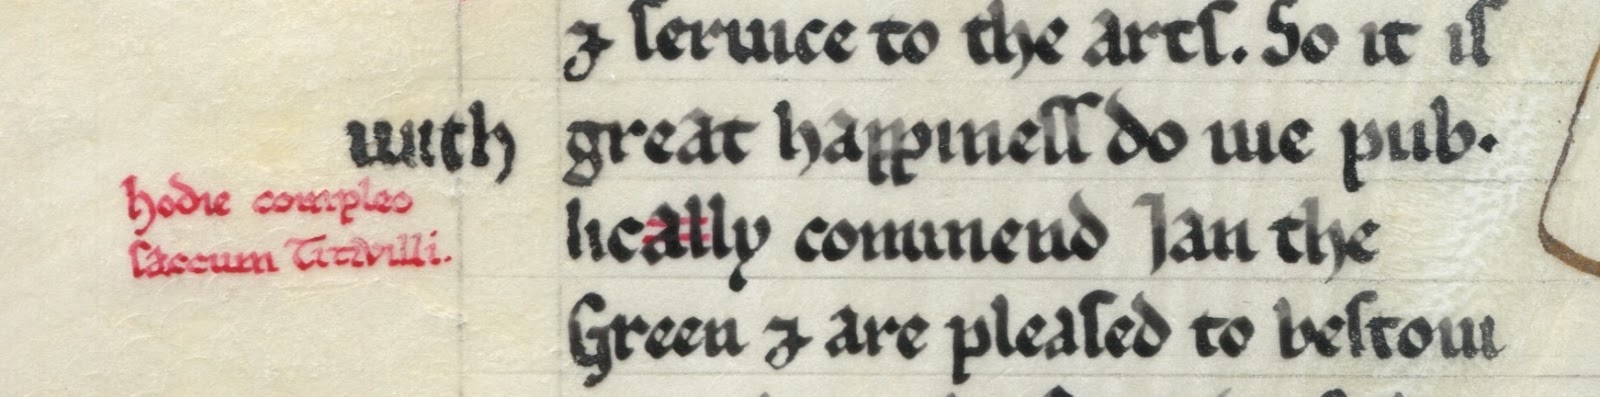 ⁊ ſeruice to the artſ. So it iſ
with great happineſſ do we pub-
lically commend Jan the
Green ⁊ are pleaſed to beſtow
hodie compleo
ſaccum Titivilli.